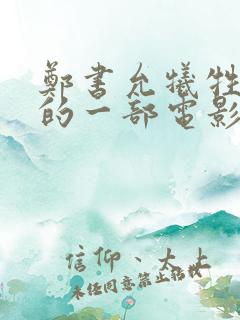 鄭書允犧牲
的一部電影
信仰、大上
未經同意禁止搭訕